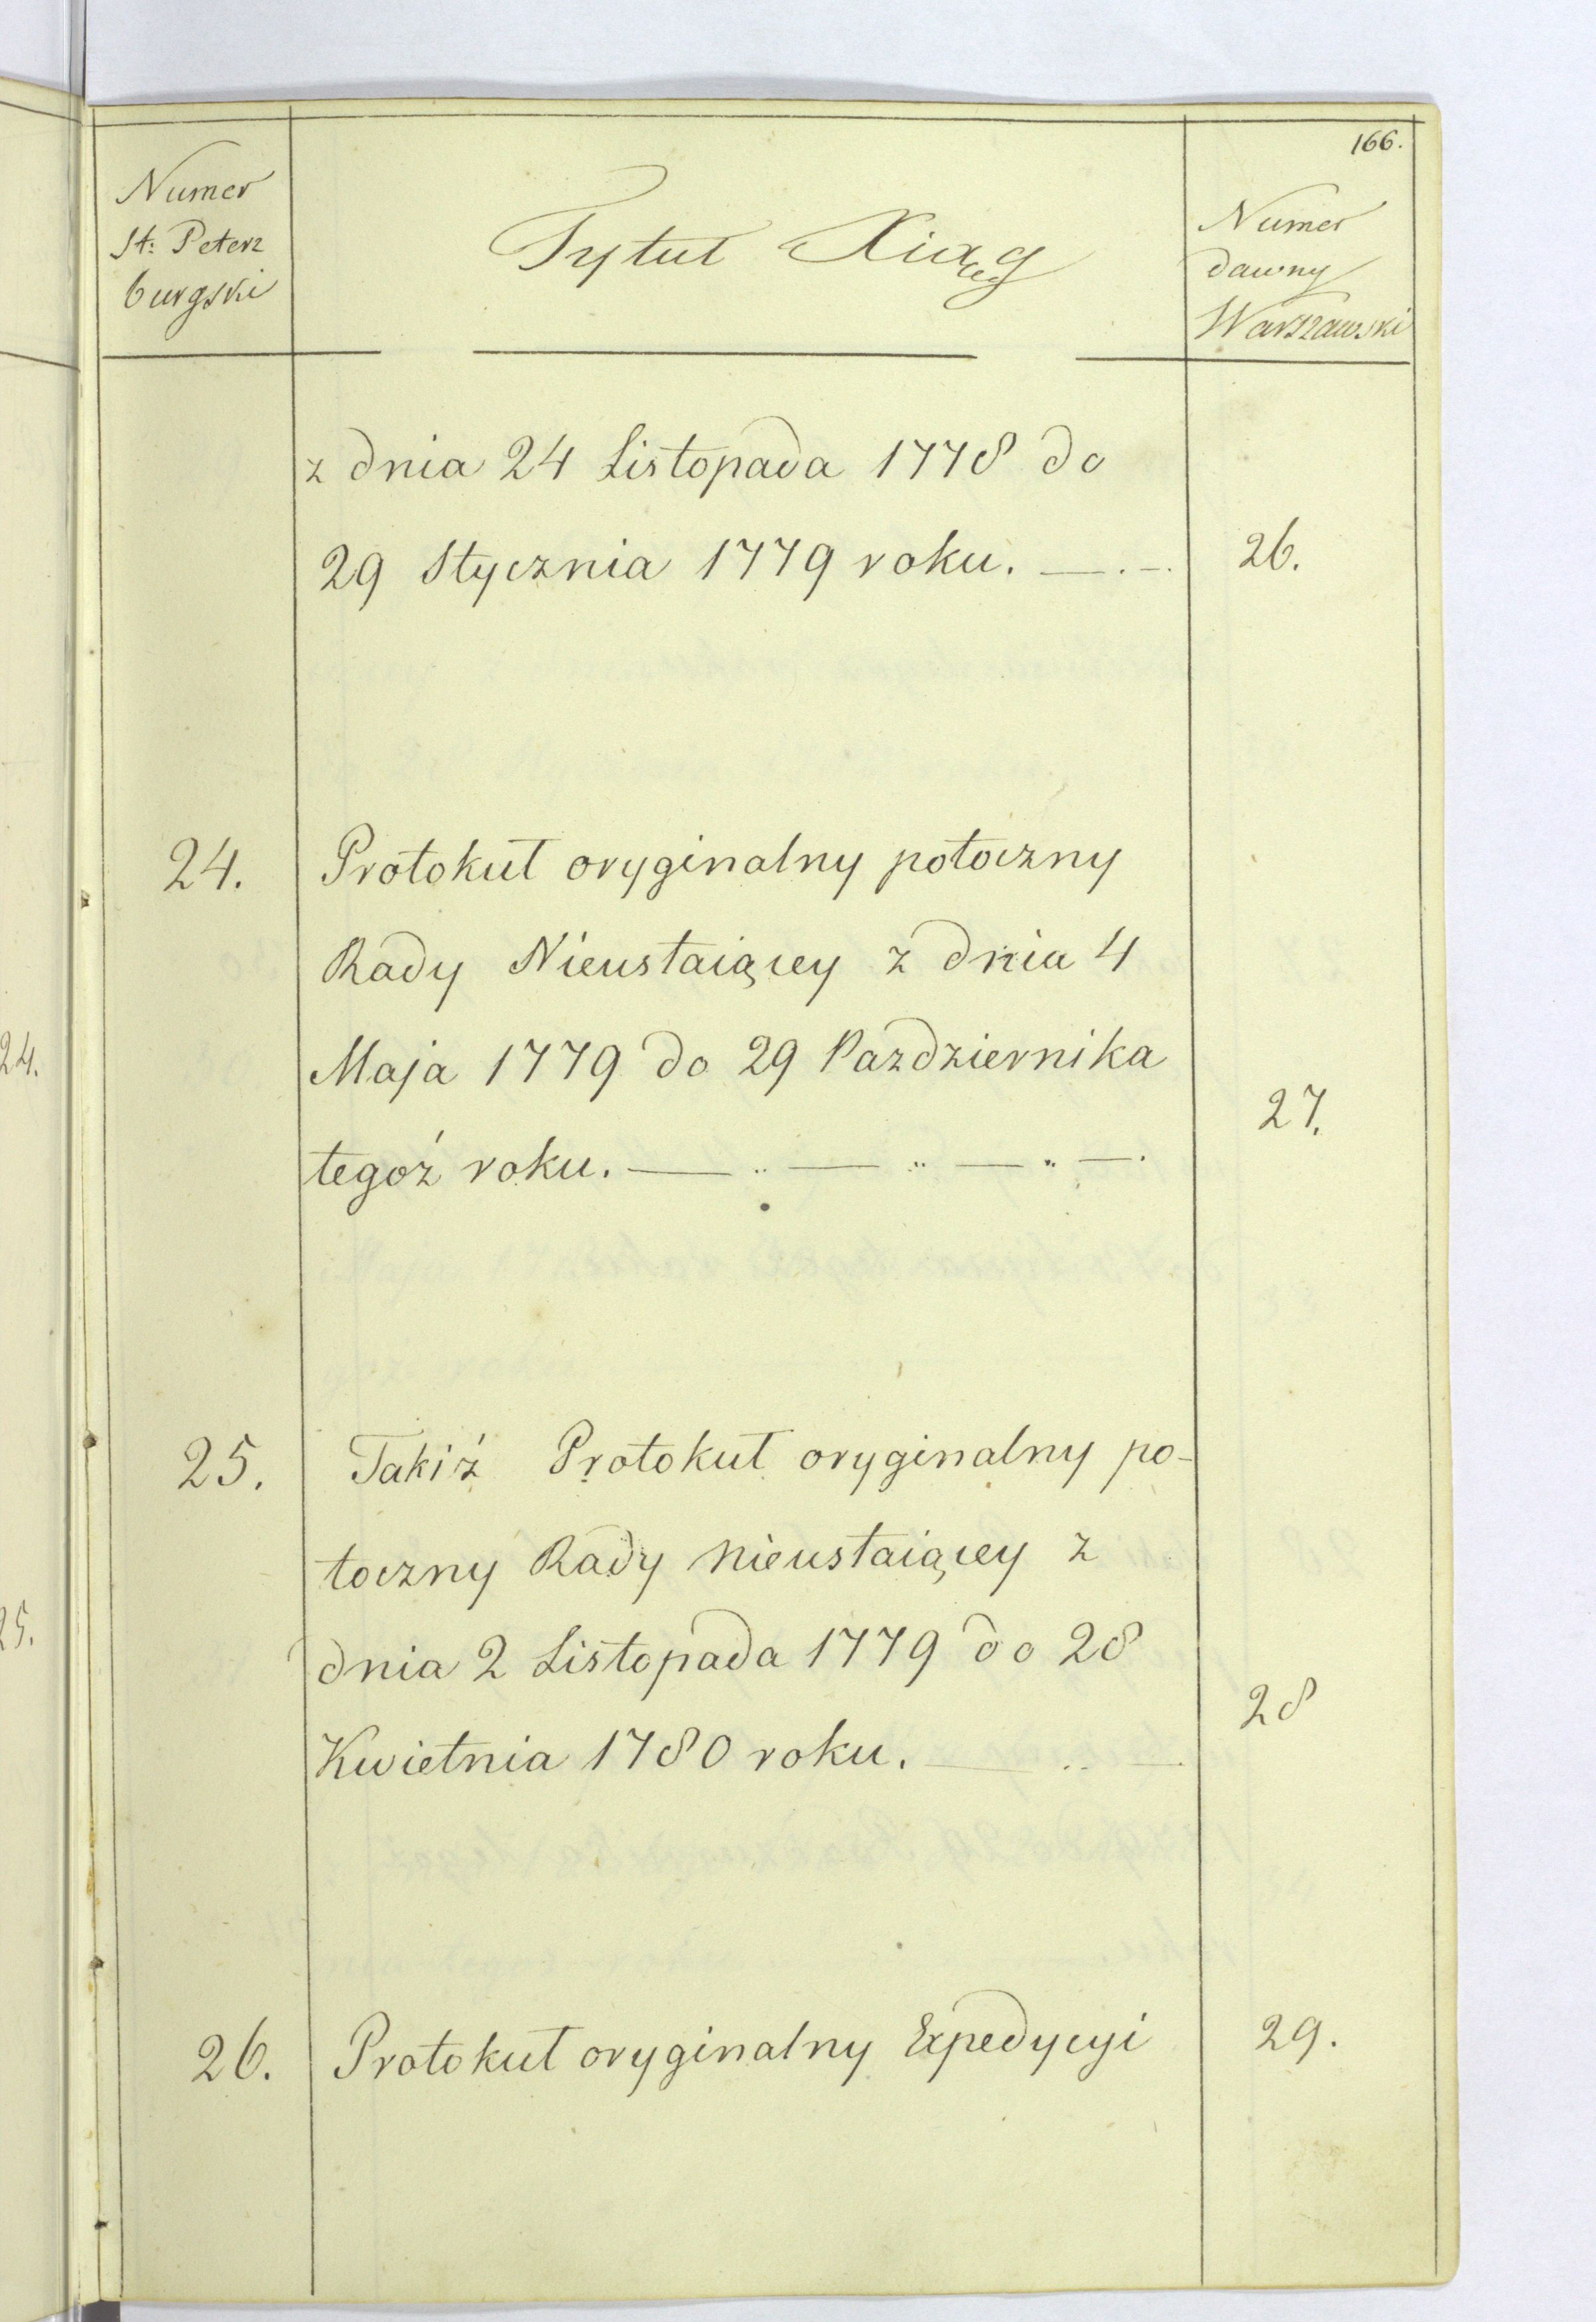 166.
Numer
St: Peterz
burgski
Tytuł Xiąg
Numer
dawny
Warszawski
z dnia 24 Listopada 1778 do
29 Stycznia 1779 roku. 26.
24. Protokuł oryginalny potoczny
Rady Nieustaiącey z dnia 4
Maja 1779 do 29 Pazdziernika
tegoż roku. 27.
25. Takiż Protokuł oryginalny po-
toczny Rady nieustaiącey z
dnia 2 Listopada 1779 do 28
Kwietnia 1780 roku. 28
26. Protokuł oryginalny Expedycyi 29.
24.
25.